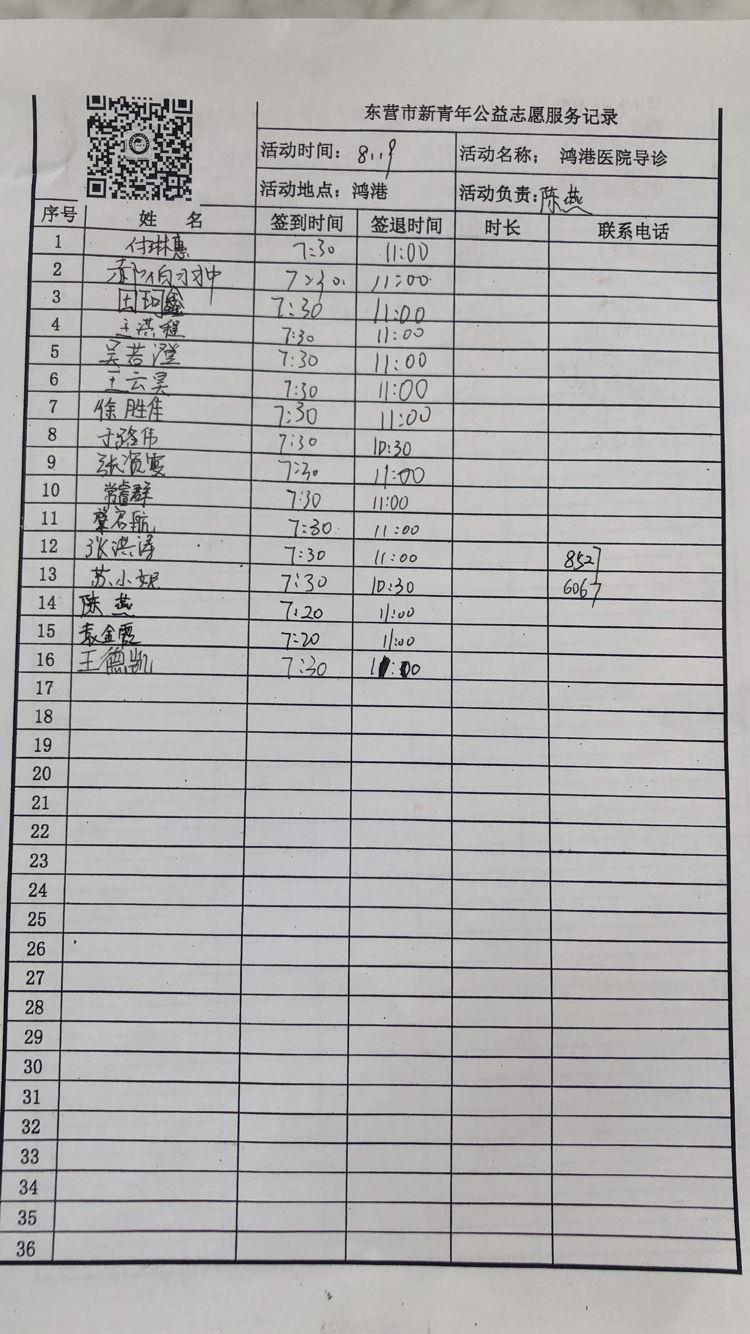 东营市新青年公益志愿服务记录
活动时间：8.19 活动名称；鸿港医院导诊
活动地点：鸿港 活动负责：陈燕
序号 姓名 签到时间 签退时间 时长 联系电话
1 付琳惠 7:30 11:00
2 7:30 11:00
3 田珂鑫 7:30 11:00
4 王洪程 7:30 11:00
5 吴若澄 7:30 11:00
6 王云昊 7:30 11:00
7 徐胜隹 7:30 11:00
8 于路伟 7:30 10:30
9 7:30 11:00
10 常睿群 7:30 11:00
11 7:30 11:00
12 张洪涛 7:30 11:00 8527
13 苏小妮 7:30 10:30 6067
14 陈燕 7:20 11:00
15 袁金霞 7:20 11:00
16 王德凯 7:30 11:00
17
18
19
20
21
22
23
24
25
26
27
28
29
30
31
32
33
34
35
36